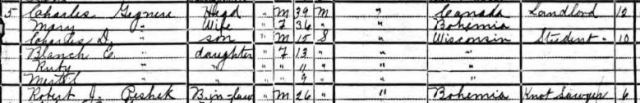 5 Charles Gignere Head " M 39 M " Canada Landlord 10
Mary " Wife " F 36 " " Bohemia
Charles D. " son " M 15 S " Wisconsin Student 10
Blanch C. " daughter " F 13 " "
Ruby " " " " 11 " " "
" " " " 9 " " "
Robert J. Peshek Br-in-law " M 26 " " Bohemia Knot Sawyer 6